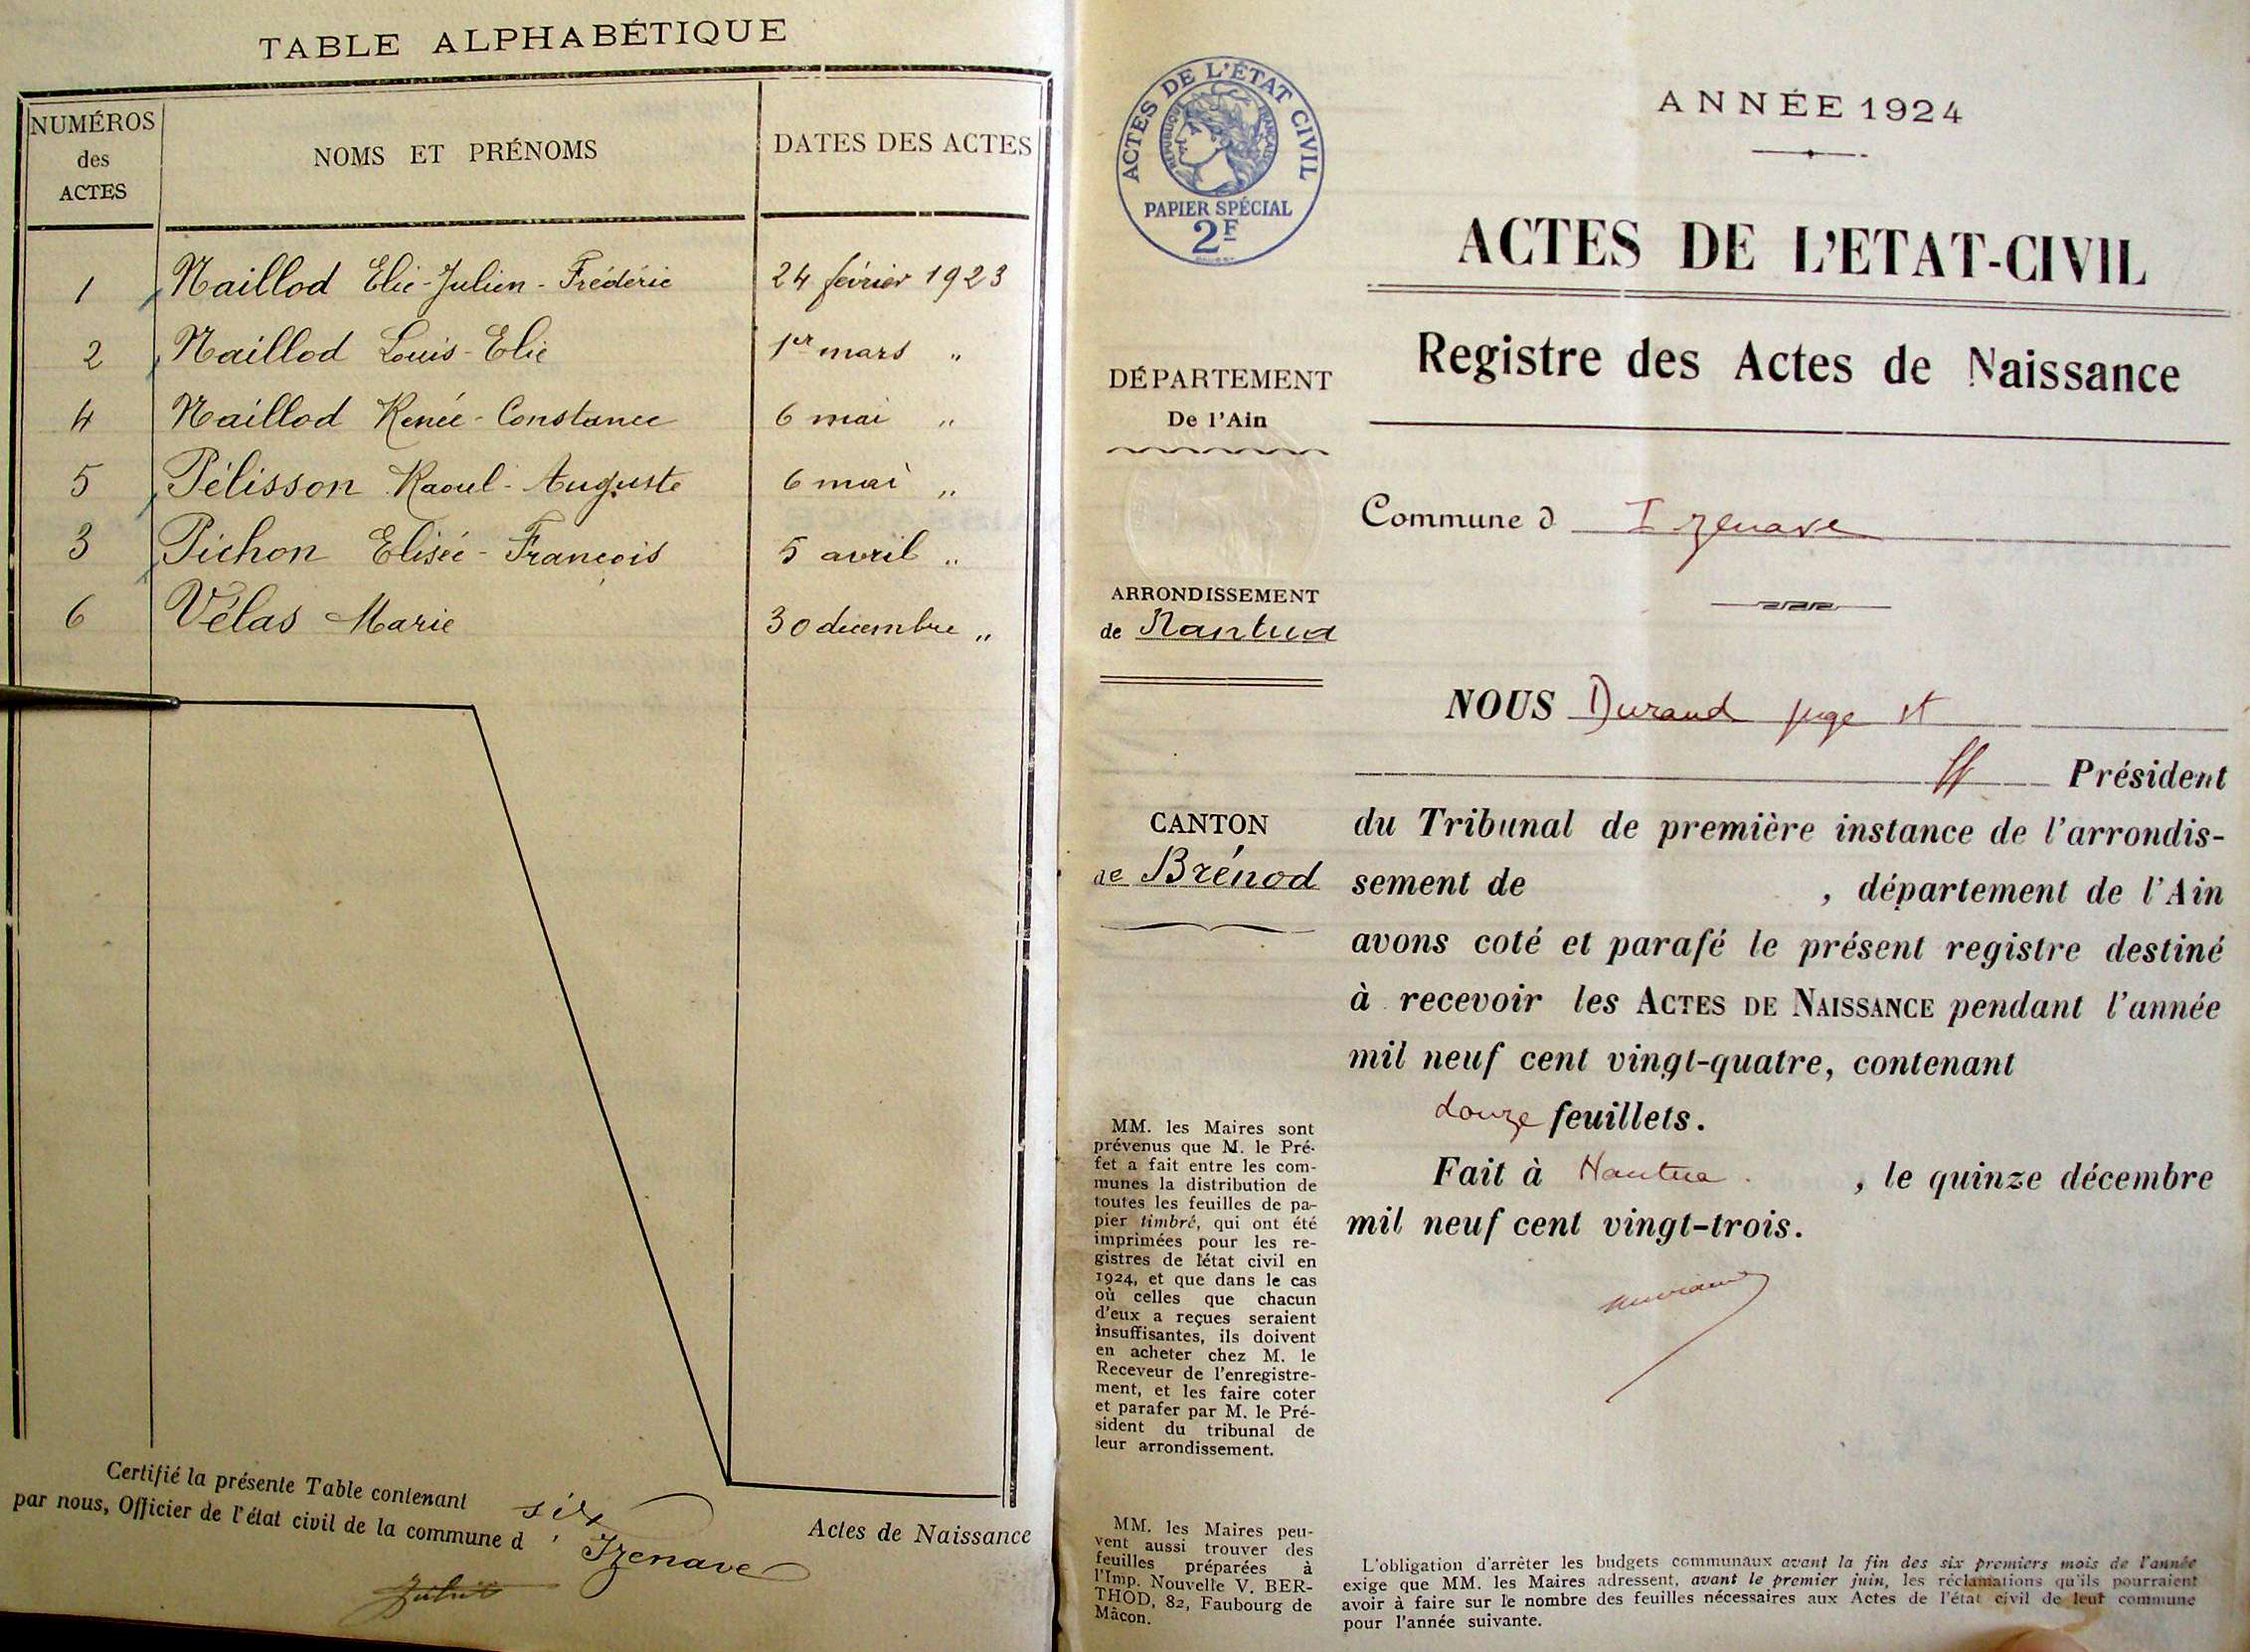 TABLE ALPHABÉTIQUE
NUMÉROS
des
ACTES
NOMS ET PRÉNOMS
DATES DES ACTES
1 Maillod Elie-Julien-Frédéric 24 février 1923
2 Maillod Louis-Elie 1er mars "
4 Maillod Renée-Constance 6 mai "
5 Pélisson Raoul-Auguste 6 mai "
3 Pichon Elisée-François 5 avril "
6 Vélas Marie 30 décembre "
Certifié la présente Table contenant six Actes de Naissance
par nous, Officier de l'état civil de la commune d'Izenave
ACTES DE L'ÉTAT CIVIL
RÉPUBLIQUE FRANÇAISE
PAPIER SPÉCIAL
2F
DÉPARTEMENT
De l'Ain
ARRONDISSEMENT
de Nantua
CANTON
de Brénod
MM. les Maires sont
prévenus que M. le Pré-
fet a fait entre les com-
munes la distribution de
toutes les feuilles de pa-
pier timbré, qui ont été
imprimées pour les re-
gistres de l'état civil en
1924, et que dans le cas
où celles que chacun
d'eux a reçues seraient
insuffisantes, ils doivent
en acheter chez M. le
Receveur de l'enregistre-
ment, et les faire coter
et parafer par M. le Pré-
sident du tribunal de
leur arrondissement.
MM. les Maires peu-
vent aussi trouver des
feuilles préparées à
l'Imp. Nouvelle V. BER-
THOD, 82, Faubourg de
Mâcon.
ANNÉE 1924
ACTES DE L'ETAT-CIVIL
Registre des Actes de Naissance
Commune d Izenave
NOUS Durand juge et
ff Président
du Tribunal de première instance de l'arrondis-
sement de , département de l'Ain
avons coté et parafé le présent registre destiné
à recevoir les ACTES DE NAISSANCE pendant l'année
mil neuf cent vingt-quatre, contenant
douze feuillets.
Fait à Nantua , le quinze décembre
mil neuf cent vingt-trois.
L'obligation d'arrêter les budgets communaux avant la fin des six premiers mois de l'année
exige que MM. les Maires adressent, avant le premier juin, les réclamations qu'ils pourraient
avoir à faire sur le nombre des feuilles nécessaires aux Actes de l'état civil de leur commune
pour l'année suivante.